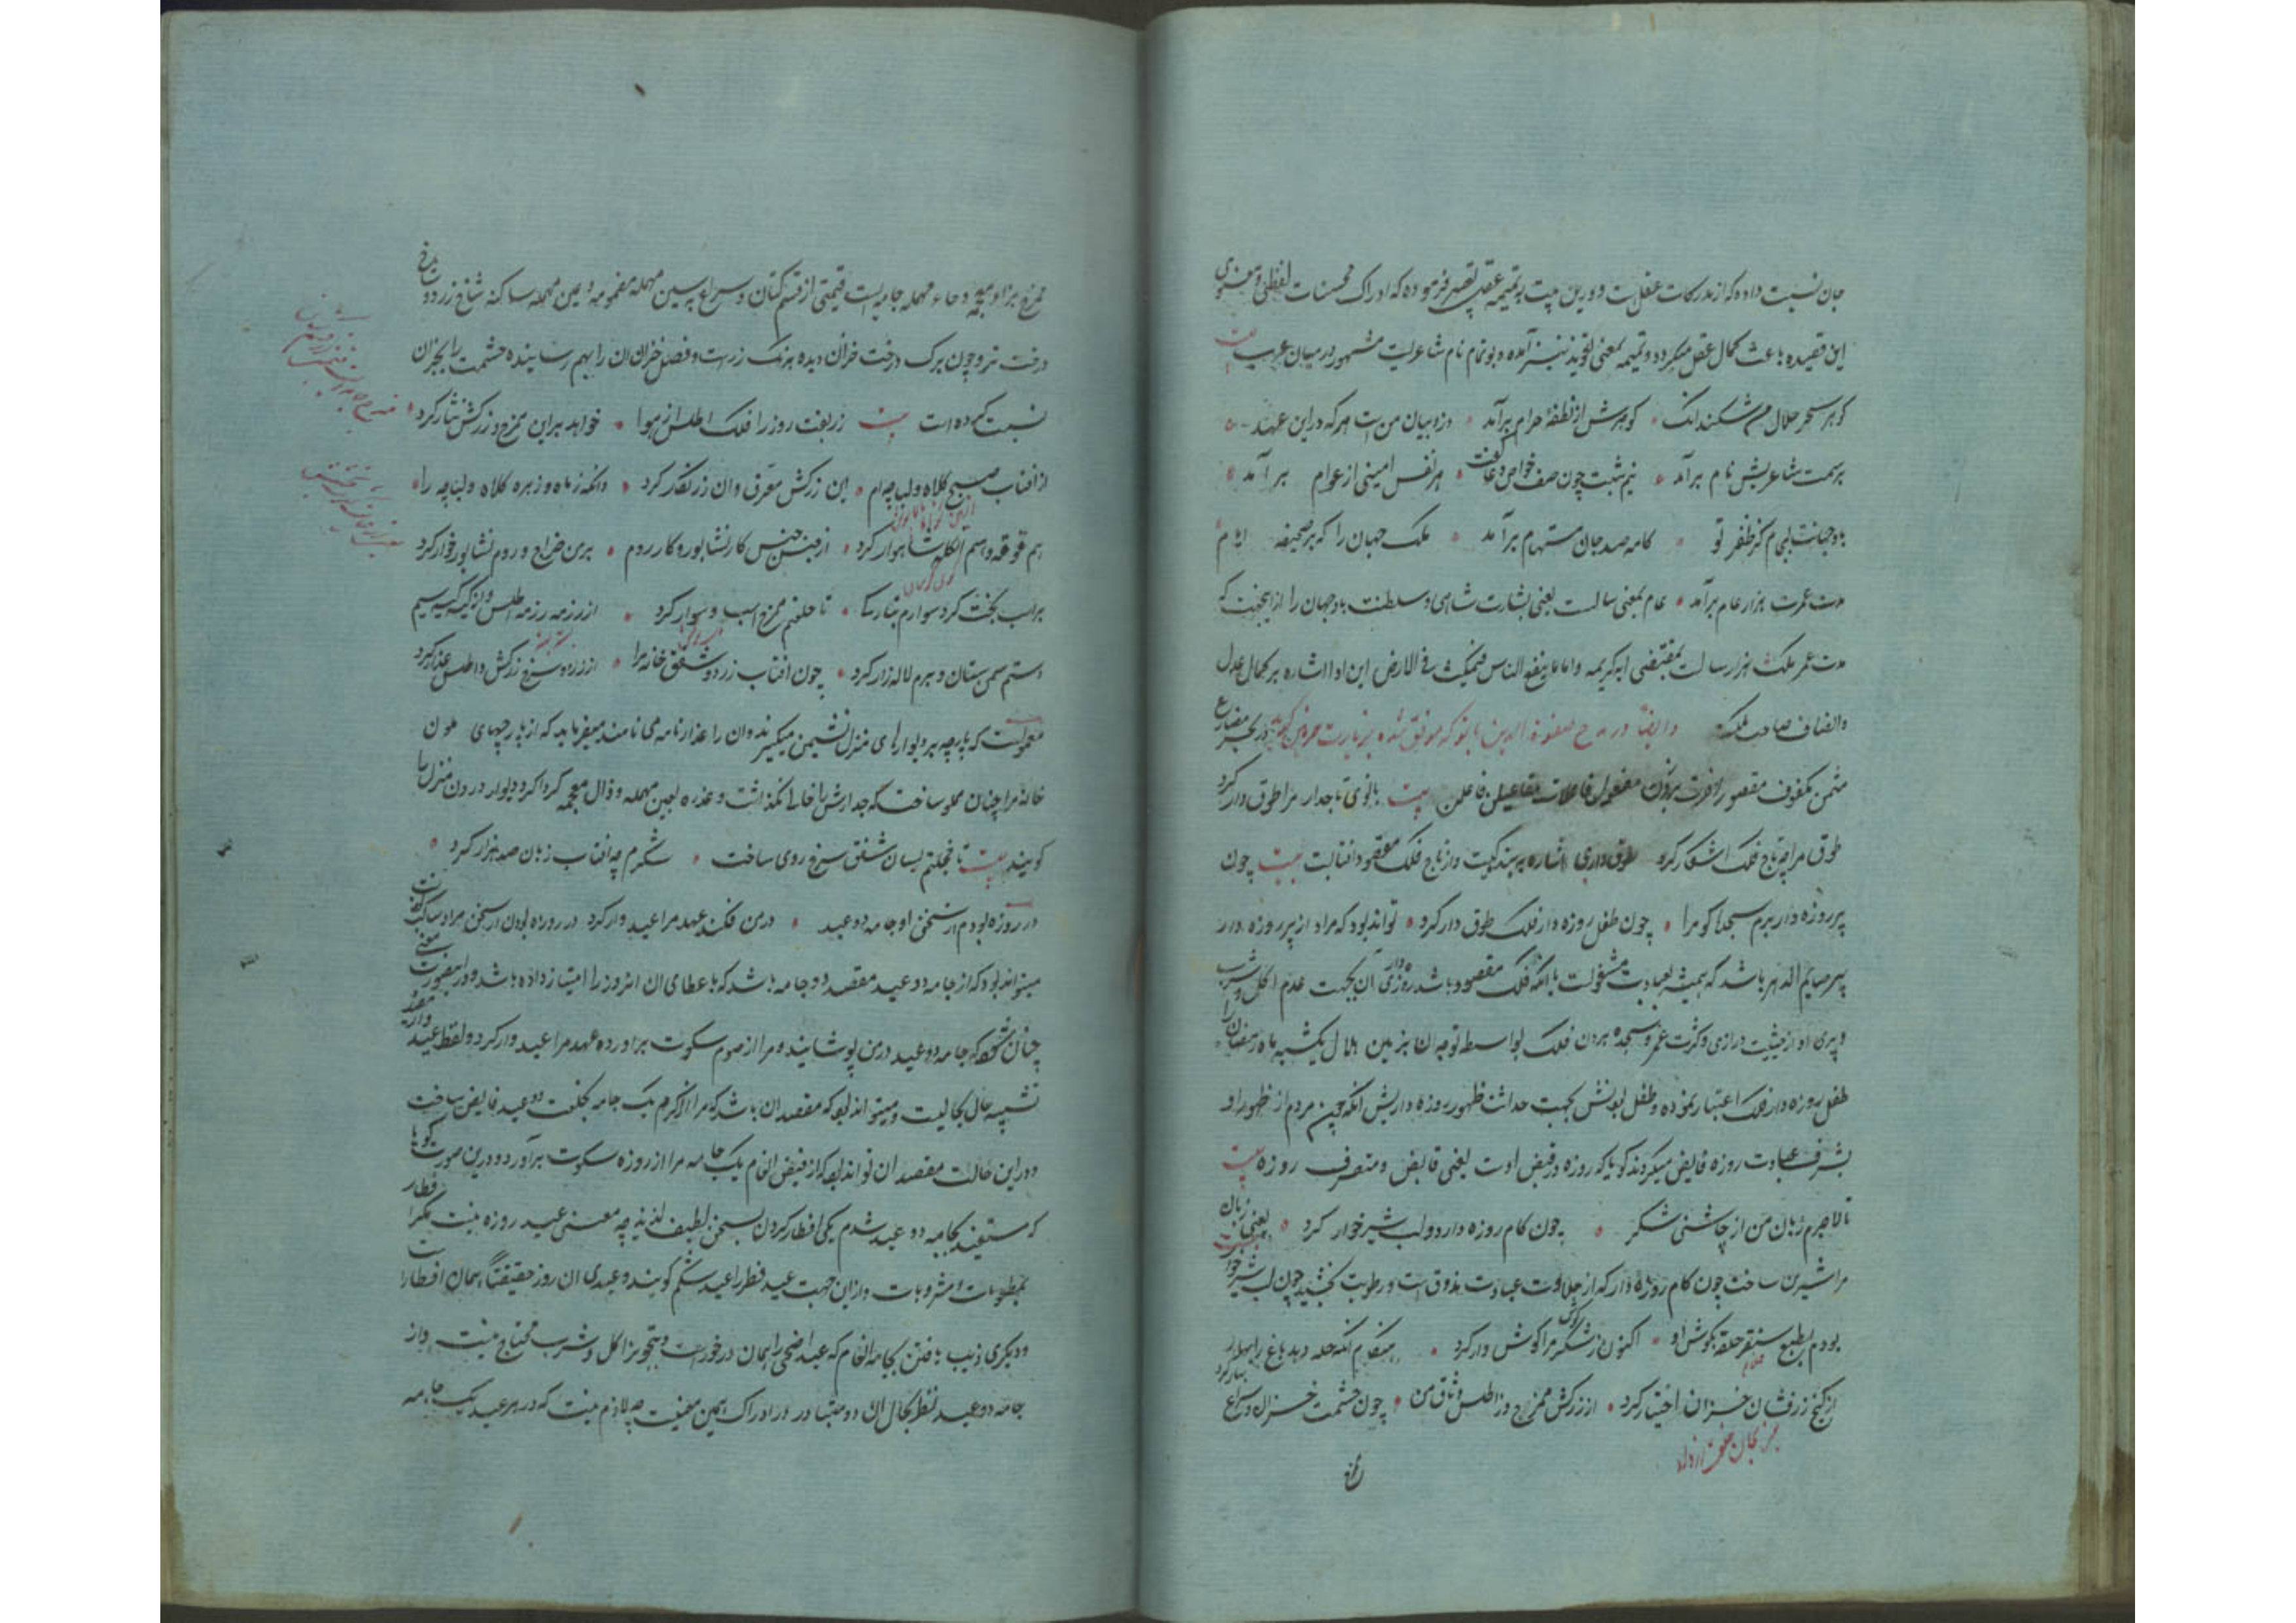 جان نسبت داده که از مدرکات عقلست و درین بیت بر تمیمه عقل تقصیر فرموده که ادراک محسنات لفظی و معنوی
این قصیده باعث کمال عقل میگردد و تمیمه بمعنی تعویذ نیز آمده و بوتمام نام شاعریست مشهور در میان عرب بیت
گوهر سحر حلال من شکند آنک • گوهرش از نطفهٔ حرام برآمد • دزد بیان من است هر که در این عهد
برسمت شاعریش نام برآمد • نیم شبت چون صف خواص دعا گفت • هر نفس آمینی از عوام برآمد •
باد جهانت بکام کز ظفر تو • کامه صد جان مستهام برآمد • ملک جهان را که بر صحیفه ایام
مدت عمرت هزار عام برآمد • عام بمعنی سالست یعنی بشارت شاهی و سلطنت باد جهان را از اینجهت که
مدت عمر ملک هزار سالست بمقتضی ایه کریمه و اما ما ینفع الناس فیمکث فی الارض این ادا اشاره بر کمال عدل
و انصاف صاحب ملکست وایضاً در مدح صفوة الدین بانو که موفق شده بزیارت حرمین گوید در بحر مضارع
مثمن مکفوف مقصور اخرب بروزن مفعول فاعلات مفاعیل فاعلن بیت بانوی تاجدار مرا طوق دار کرد
طوق مرا چو تاج فلک اشکار کرد طوق داری اشاره به بندگیست و از تاج فلک مقصود افتابست بیت چون
پیر روزه دار برم سجدها کو مرا • چون طفل روزه دار فلک طوق دار کرد • تواند بود که مراد از پیر روزه دار
پیر صایم الدهر باشد که همیشه بعبادت مشغولست یا آنکه فلک مقصود باشد روزه داری آن بجهت عدم اکل و شرب
و پیری او از حیثیت درازی و کثرت عمر و سجده بردن فلک بواسطه توجه آن بزمین هلال یکشبه ماه رمضان را
طفل روزه دار فلک اعتبار نموده و طفل بودنش بجهت حداثت ظهور روزه داریش آنکه چون مردم از ظهور او
بشرف عبادت روزه فایض میگردند گویا که روزه در قبض اوست یعنی قابض و متصرف روزه بیت
تا لاجرم زبان من از چاشنی شکر • چون کام روزه دار و لب شیرخوار کرد • یعنی زبان
مرا شیرین ساخت چون کام روزه دار که از حلاوت عبادت بذوق است و رطوبت بخشید چون لب شیرخوار بیت
بودم بطبع سنقر حلقه بگوش او • اکنون ز شکر گوش مرا گوش وار کرد • هنگام آنکه حله دهد باغ را بهار
از گنج زرفشان خزان اختیار کرد • از زرکش ممزج و ز اطلس وثاق من • چون حشمت خزان و سراغ بهار کرد
ممزج بزاء معجمه و حاء مهمله جامه ایست قیمتی از قسم کتان و سراغ بسین مهمله مضمومه و عین مهمله ساکنه شاخ زرد و سرخ
درخت تر و چون برک درخت خزان دیده برنگ زرست و فصل خزان آن را بهم رساینده حشمت را بخزان
نسبت کرده است بیت زربفت روز را فلک اطلس از هوا • خواهد بر این ممزج و زرکش نثار کرد •
از افتاب صبح کلاه و لباچه ام • این زرکش مغرق و ان زرنگار کرد • وانگه ز ماه و زهره کلاه و لباچه را
هم قوقه و اسم انگله شاهوار کرد • از جنس جنس کار نشابور و کار روم • برمن خراج و روم نشابور خوار کرد
بر اسب بخت کرد سوارم • تا خلعتم ممزج اسب و سوار کرد • از رزمه رزمه اطلس و از کیسه کیسه سیم
دستم سمن ستان و برم لاله زار کرد • چون افتاب زرد و شفق خانه مرا • از زرد و سرخ زرکش و اطلس عذار کرد
معمولست که پارچه بر دیوارهای منزل نشیمن میگیرند و ان را عذارنامه می نامند میفرماید که از پارچهای ملون
خانه مرا چنان مملو ساخت که جدارش را خالی نگذاشت و عذره بعین مهمله و ذال معجمه گرداگرد دیوار درون منزل را
گویند بیت تا خجلتم بسان شفق سرخ روی ساخت • شکرم چو افتاب زبان صد هزار کرد •
در روزه بودم از سخن او جامه دو عید • درمن فکند عهد مرا عید وار کرد در روزه بودن از سخن مراد ساکت گشتن
میتواند بود که از جامه دو عید مقصد دو جامه باشد که باعطای ان انروز را امتیاز داده باشد و در اینصورت معنی
چنان شود که جامه دو عید درمن پوشانید و مرا از صوم سکوت براورده عهد مرا عید وار کرد و لفظ عید
تشبیه حال بحالیست و میتواند بود که مقصد ان باشد که مرا از کرم یک جامه بخلعت دو عید فایض ساخت
و در این حالت مقصد ان تواند بود که از فیض انعام یک جامه مرا از روزه سکوت برآورد و درین صورت گویا
که مستفید بجامه دو عید شدم یکی افطار کردن بسخن لطیف لذیذ چه معنی عید روزه نیست مگر افطار
بمطعومات و مشروبات و ازان جهت عید فطر را عید شکم گویند و عیدی ان روز حقیقتاً همان افطار است
و دیگری زیب یافتن بجامه انعام که عید اضحی را همان درخور است و بتجویز اکل و شرب محتاج نیست و از
جامه دو عید نظر بحال ان دو متبادر در ادراک همین معنیست چه لازم نیست که در هر عید یک جامه